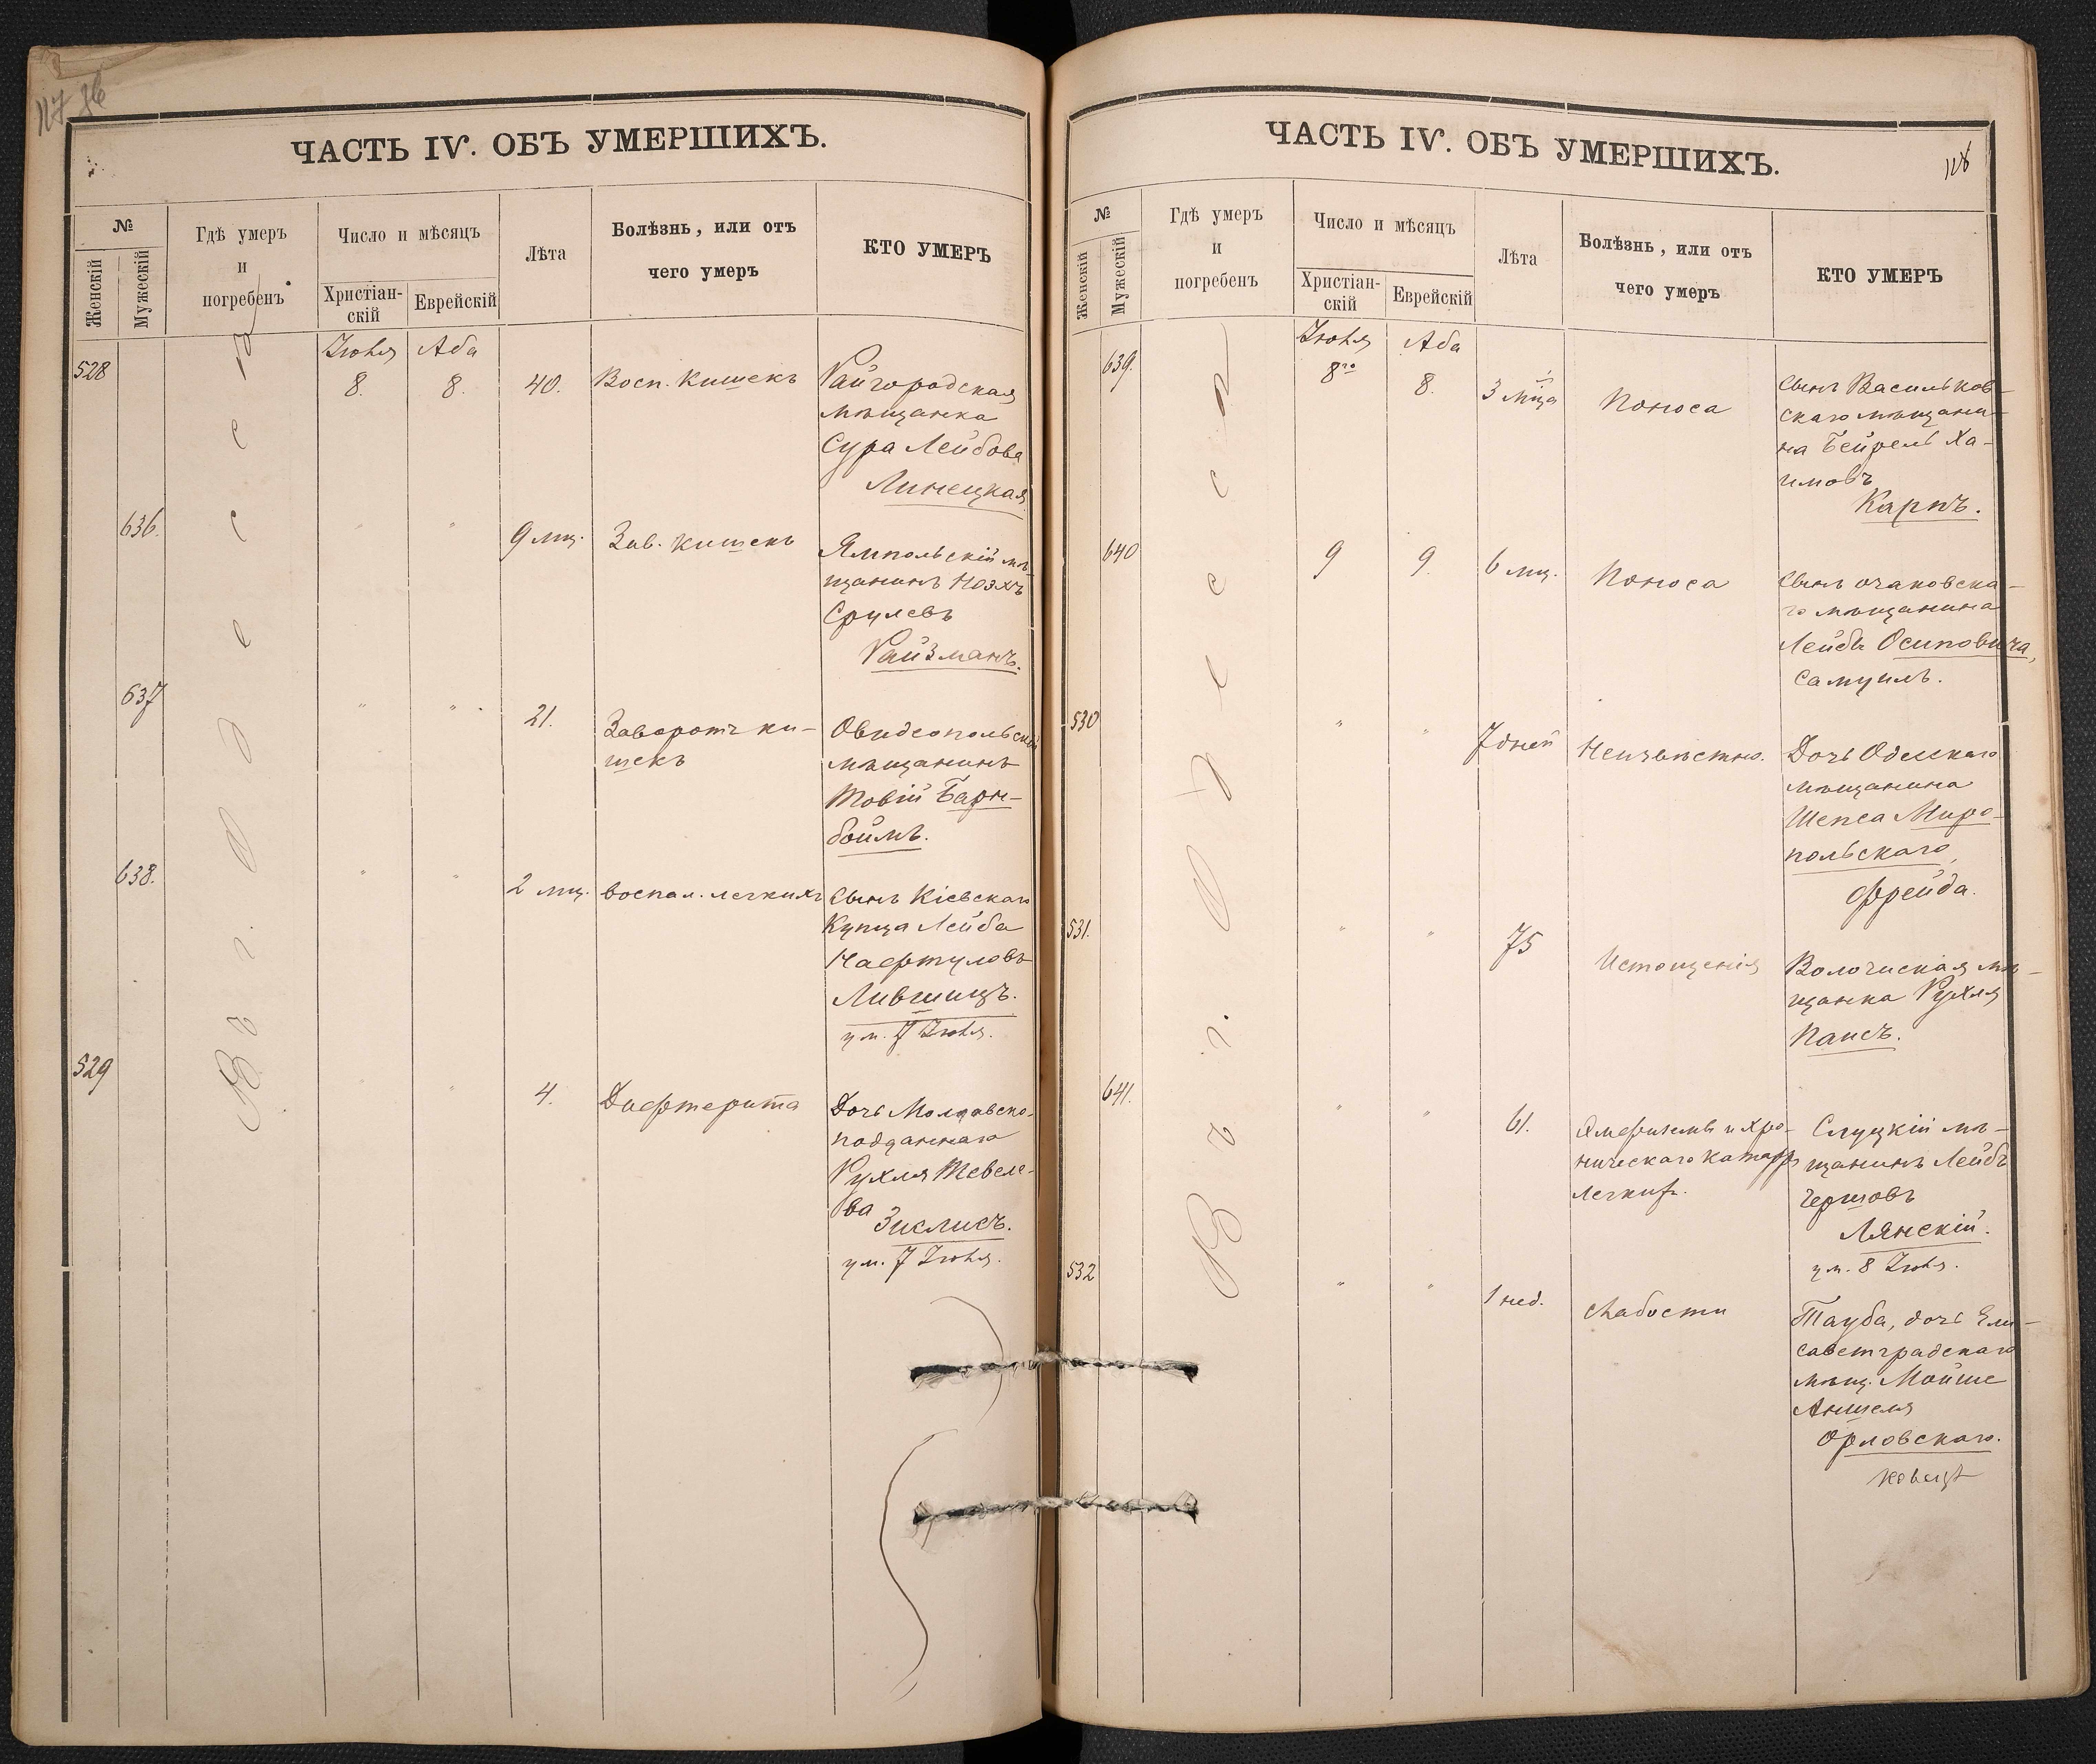 ЧАСТЬ IV. ОБЪ УМЕРШИХЪ.
№
Женскій
Мужескій
Гдѣ умеръ
и
погребенъ
Число и мѣсяцъ
Христіан-
скій
Еврейскій
Лѣта
Болѣзнь, или отъ
чего умеръ
КТО УМЕРЪ
Въ г. Одессѣ
Іюля Аба
528 8. 8. 40. Восп. кишекъ Райгородская
мѣщанка
Сура Лейбова
Линецкая
636. " " 9 мц. Зав. кишекъ Ямпольскій мѣ-
щанинъ Нозхъ
Срулевъ
Райзманъ.
637 " " 21. Заворотъ ки- Овидіопольскій
шекъ мѣщанинъ
Товій Барн-
боймъ.
638. " " 2 мц. воспал. легкихъ Сынъ Кіевскаго
Купца Лейба
Нафтуловъ
Лившицъ.
ум. 7 Іюля.
529 " " 4. Дифтерита Дочь Молдавско-
подданнаго
Рухля Тевеле-
ва
Зислисъ.
ум. 7 Іюля.
ЧАСТЬ IV. ОБЪ УМЕРШИХЪ.
118
№
Женскій
Мужескій
Гдѣ умеръ
и
погребенъ
Число и мѣсяцъ
Христіан-
скій
Еврейскій
Лѣта
Болѣзнь, или отъ
чего умеръ
КТО УМЕРЪ
Въ г. Одессѣ
Іюля Аба
639. 8го 8. 3 мца Поноса Сынъ Васильков-
скаго мѣщани-
на Бейрель Ха-
имовъ
Карпъ.
640 9 9. 6 мц. Поноса Сынъ очаковска-
го мѣщанина
Лейбы Осиповича,
Самуилъ.
530 " " 7 дней Неизвѣстно. Дочь Одесскаго
мѣщанина
Шепса Миро-
польскаго,
Фрейда.
531. " " 75 Истощенія Волочиская мѣ-
щанка Рухля
Паисъ.
641. " " 61. Эмфизема и хро- Слуцкій мѣ-
ническаго катарр. щанинъ Лейбъ
легкихъ. Гершовъ
Лянскій.
ум. 8 Іюля.
532 " " 1 нед. Слабости Тауба, дочь Ели-
саветградскаго
мѣщ. Мойше
Аншеля
Орловскаго.